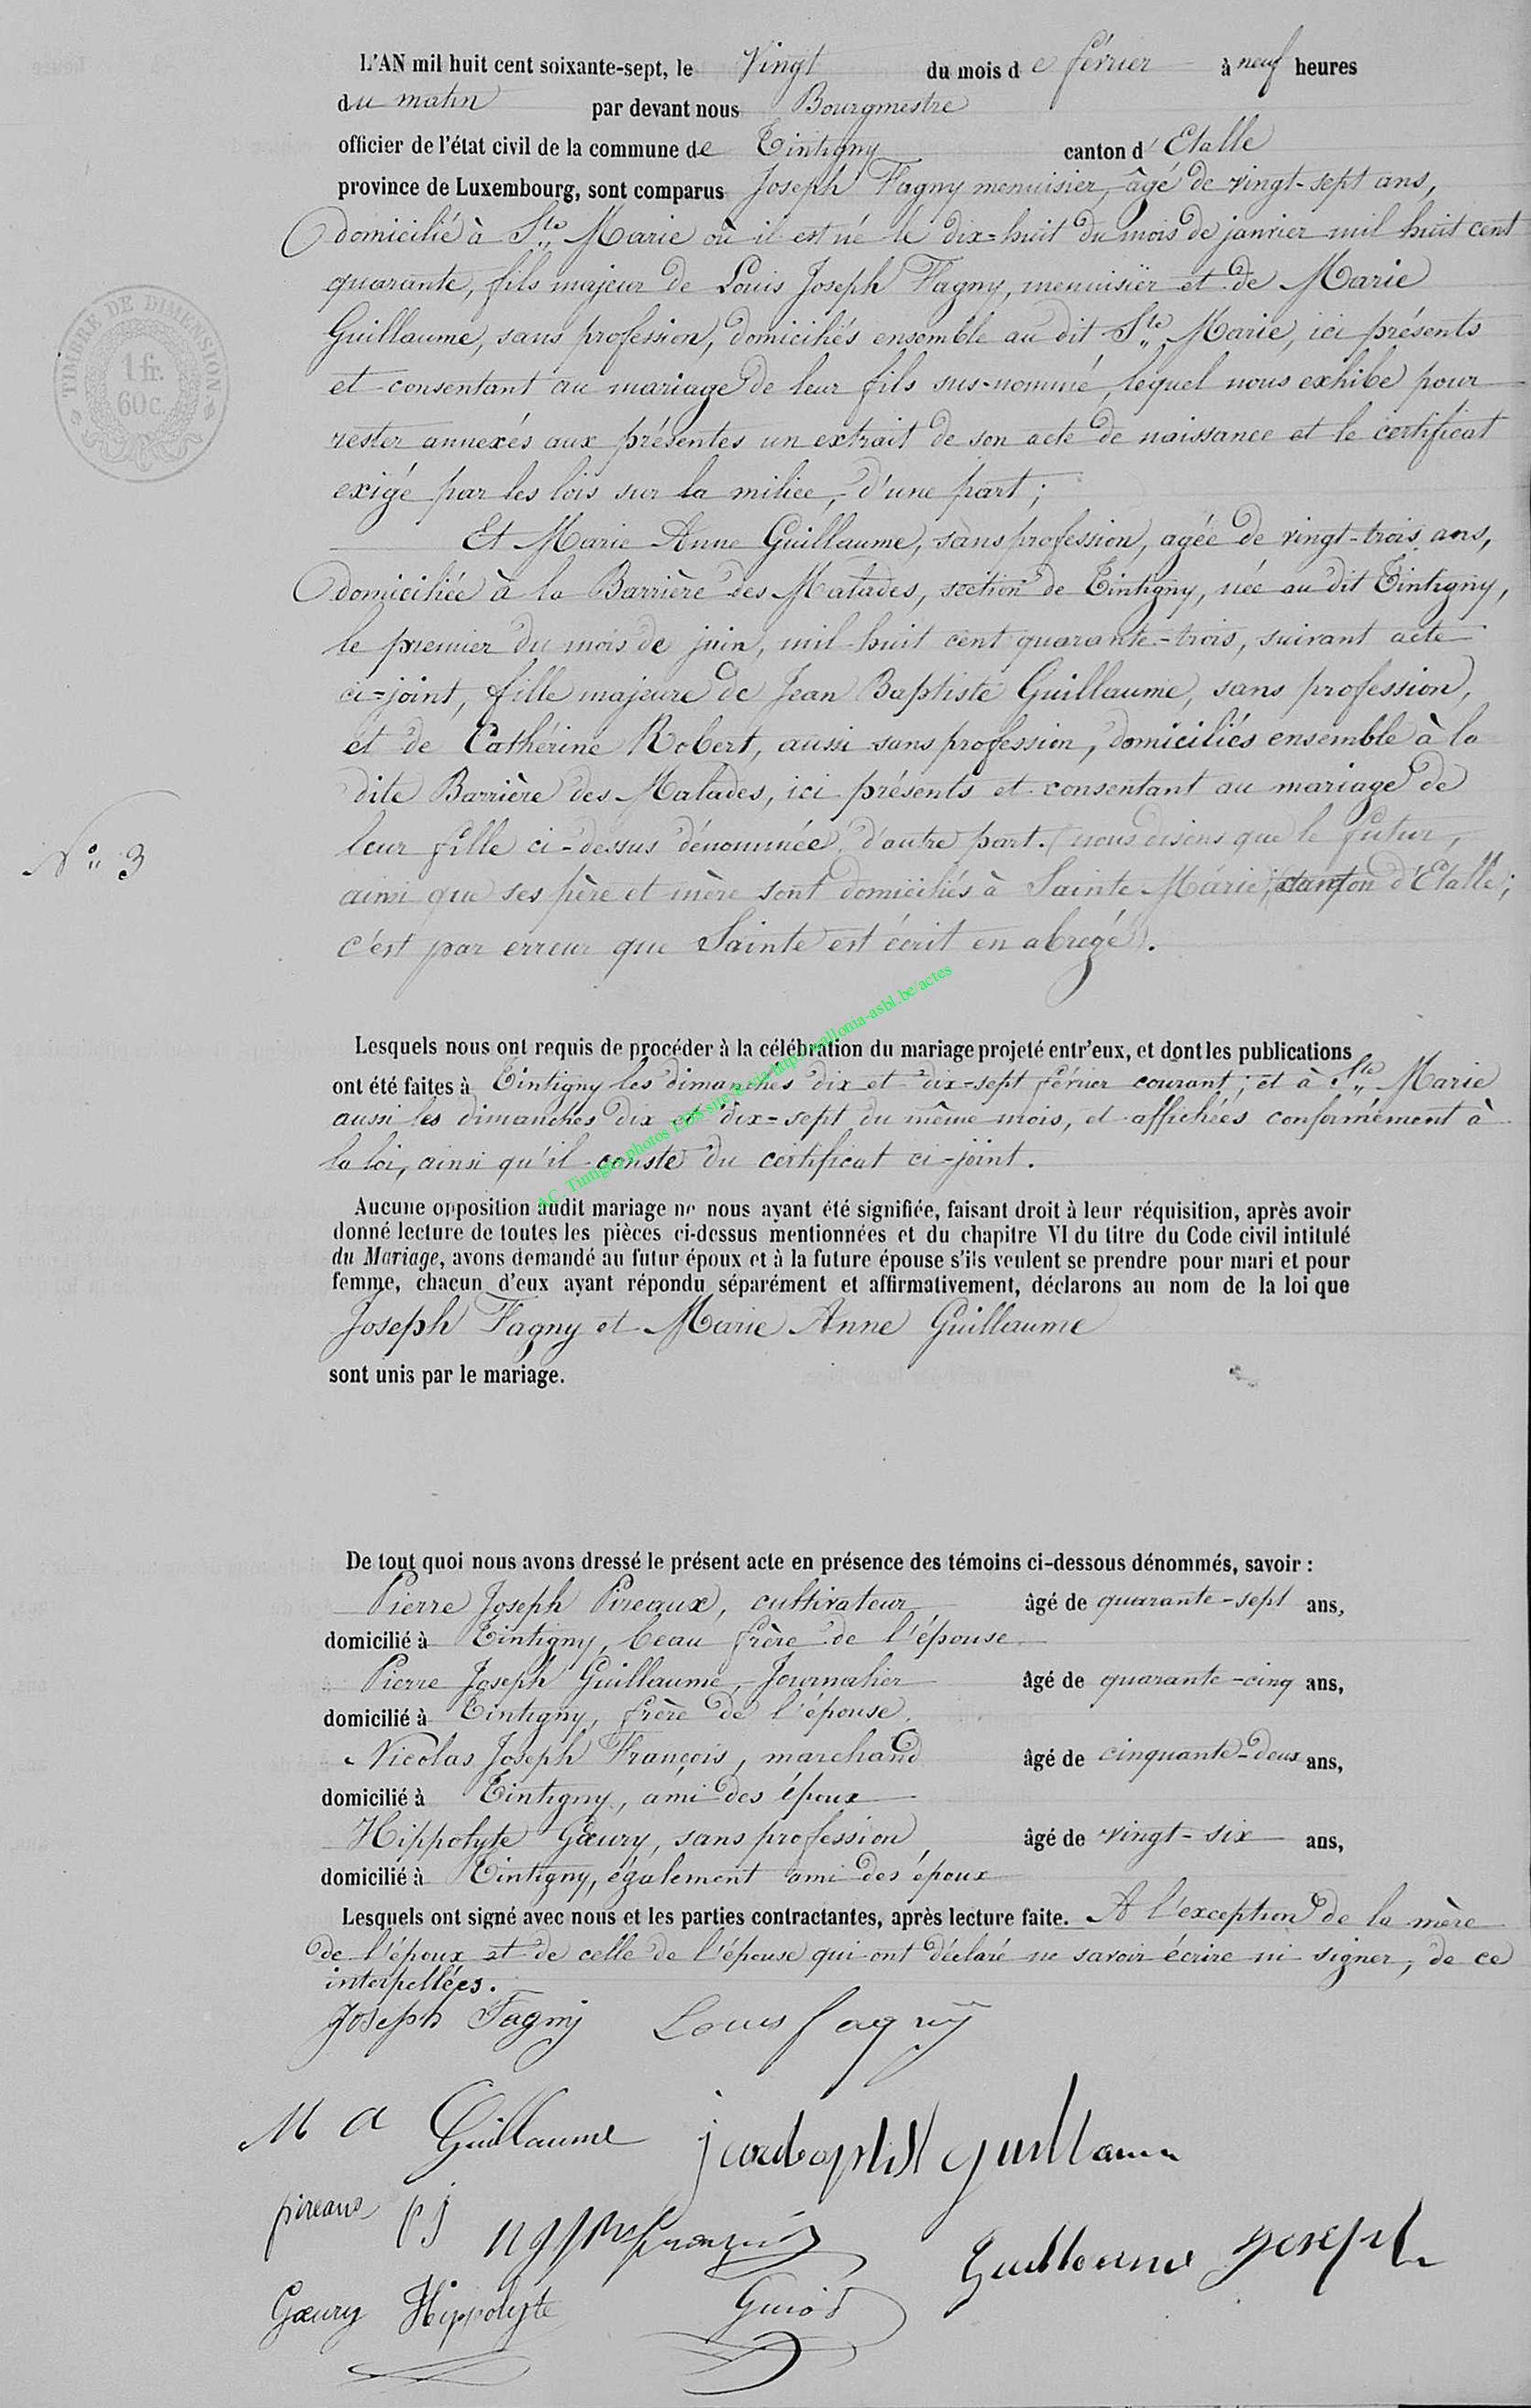 L'AN mil huit cent soixante-sept, le Vingt du mois de février à neuf heures
du matin par devant nous Bourgmestre
officier de l'état civil de la commune de Tintigny canton d'Etalle
province de Luxembourg, sont comparus Joseph Fagny menuisier, âgé de vingt-sept ans,
domicilié à Ste Marie où il est né le dix-huit du mois de janvier mil huit cent
quarante, fils majeur de Louis Joseph Fagny, menuisier et de Marie
Guillaume, sans profession, domiciliés ensemble au dit Ste Marie, ici présents
et consentant au mariage de leur fils sus-nommé, lequel nous exhibe pour
rester annexés aux présentes un extrait de son acte de naissance et le certificat
exigé par les lois sur la milice, d'une part;
Et Marie Anne Guillaume, sans profession, agée de vingt-trois ans,
domiciliée à la Barrière des Malades, section de Tintigny, née au dit Tintigny,
le premier du mois de juin, mil huit cent quarante-trois, suivant acte
ci-joint, fille majeure de Jean Baptiste Guillaume, sans profession,
et de Cathérine Robert, aussi sans profession, domiciliés ensemble à la
dite Barrière des Malades, ici présents et consentant au mariage de
leur fille ci-dessus dénommée d'autre part. (nous disons que le futur,
ainsi que ses père et mère sont domiciliés à Sainte Marie, canton d'Etalle;
c'est par erreur que Sainte est écrit en abregé).
TIMBRE DE DIMENSION
1 fr.
60 c.
No 3
Lesquels nous ont requis de procéder à la célébration du mariage projeté entr'eux, et dont les publications
ont été faites à Tintigny les dimanches dix et dix-sept février courant; et à Ste Marie
aussi les dimanches dix et dix-sept du même mois, et affichées conformément à
la loi, ainsi qu'il conste du certificat ci-joint.
Aucune opposition audit mariage ne nous ayant été signifiée, faisant droit à leur réquisition, après avoir
donné lecture de toutes les pièces ci-dessus mentionnées et du chapitre VI du titre du Code civil intitulé
du Mariage, avons demandé au futur époux et à la future épouse s'ils veulent se prendre pour mari et pour
femme, chacun d'eux ayant répondu séparément et affirmativement, déclarons au nom de la loi que
Joseph Fagny et Marie Anne Guillaume
sont unis par le mariage.
De tout quoi nous avons dressé le présent acte en présence des témoins ci-dessous dénommés, savoir :
Pierre Joseph Pireaux, cultivateur âgé de quarante-sept ans,
domicilié à Tintigny, beau frère de l'épouse
Pierre Joseph Guillaume, Journalier âgé de quarante-cinq ans,
domicilié à Tintigny, frère de l'épouse.
Nicolas Joseph François, marchand âgé de cinquante-deux ans,
domicilié à Tintigny, ami des époux
Hippolyte Gœury, sans profession, âgé de vingt-six ans,
domicilié à Tintigny, également ami des époux
Lesquels ont signé avec nous et les parties contractantes, après lecture faite. A l'exception de la mère
de l'époux et de celle de l'épouse qui ont déclaré ne savoir écrire ni signer, de ce
interpellées.
Joseph Fagny Louis fagny
M a Guillaume jeanbaptist guillaume
pireaux pj françois Guillaume joseph
Gœury Hippolyte Guiot